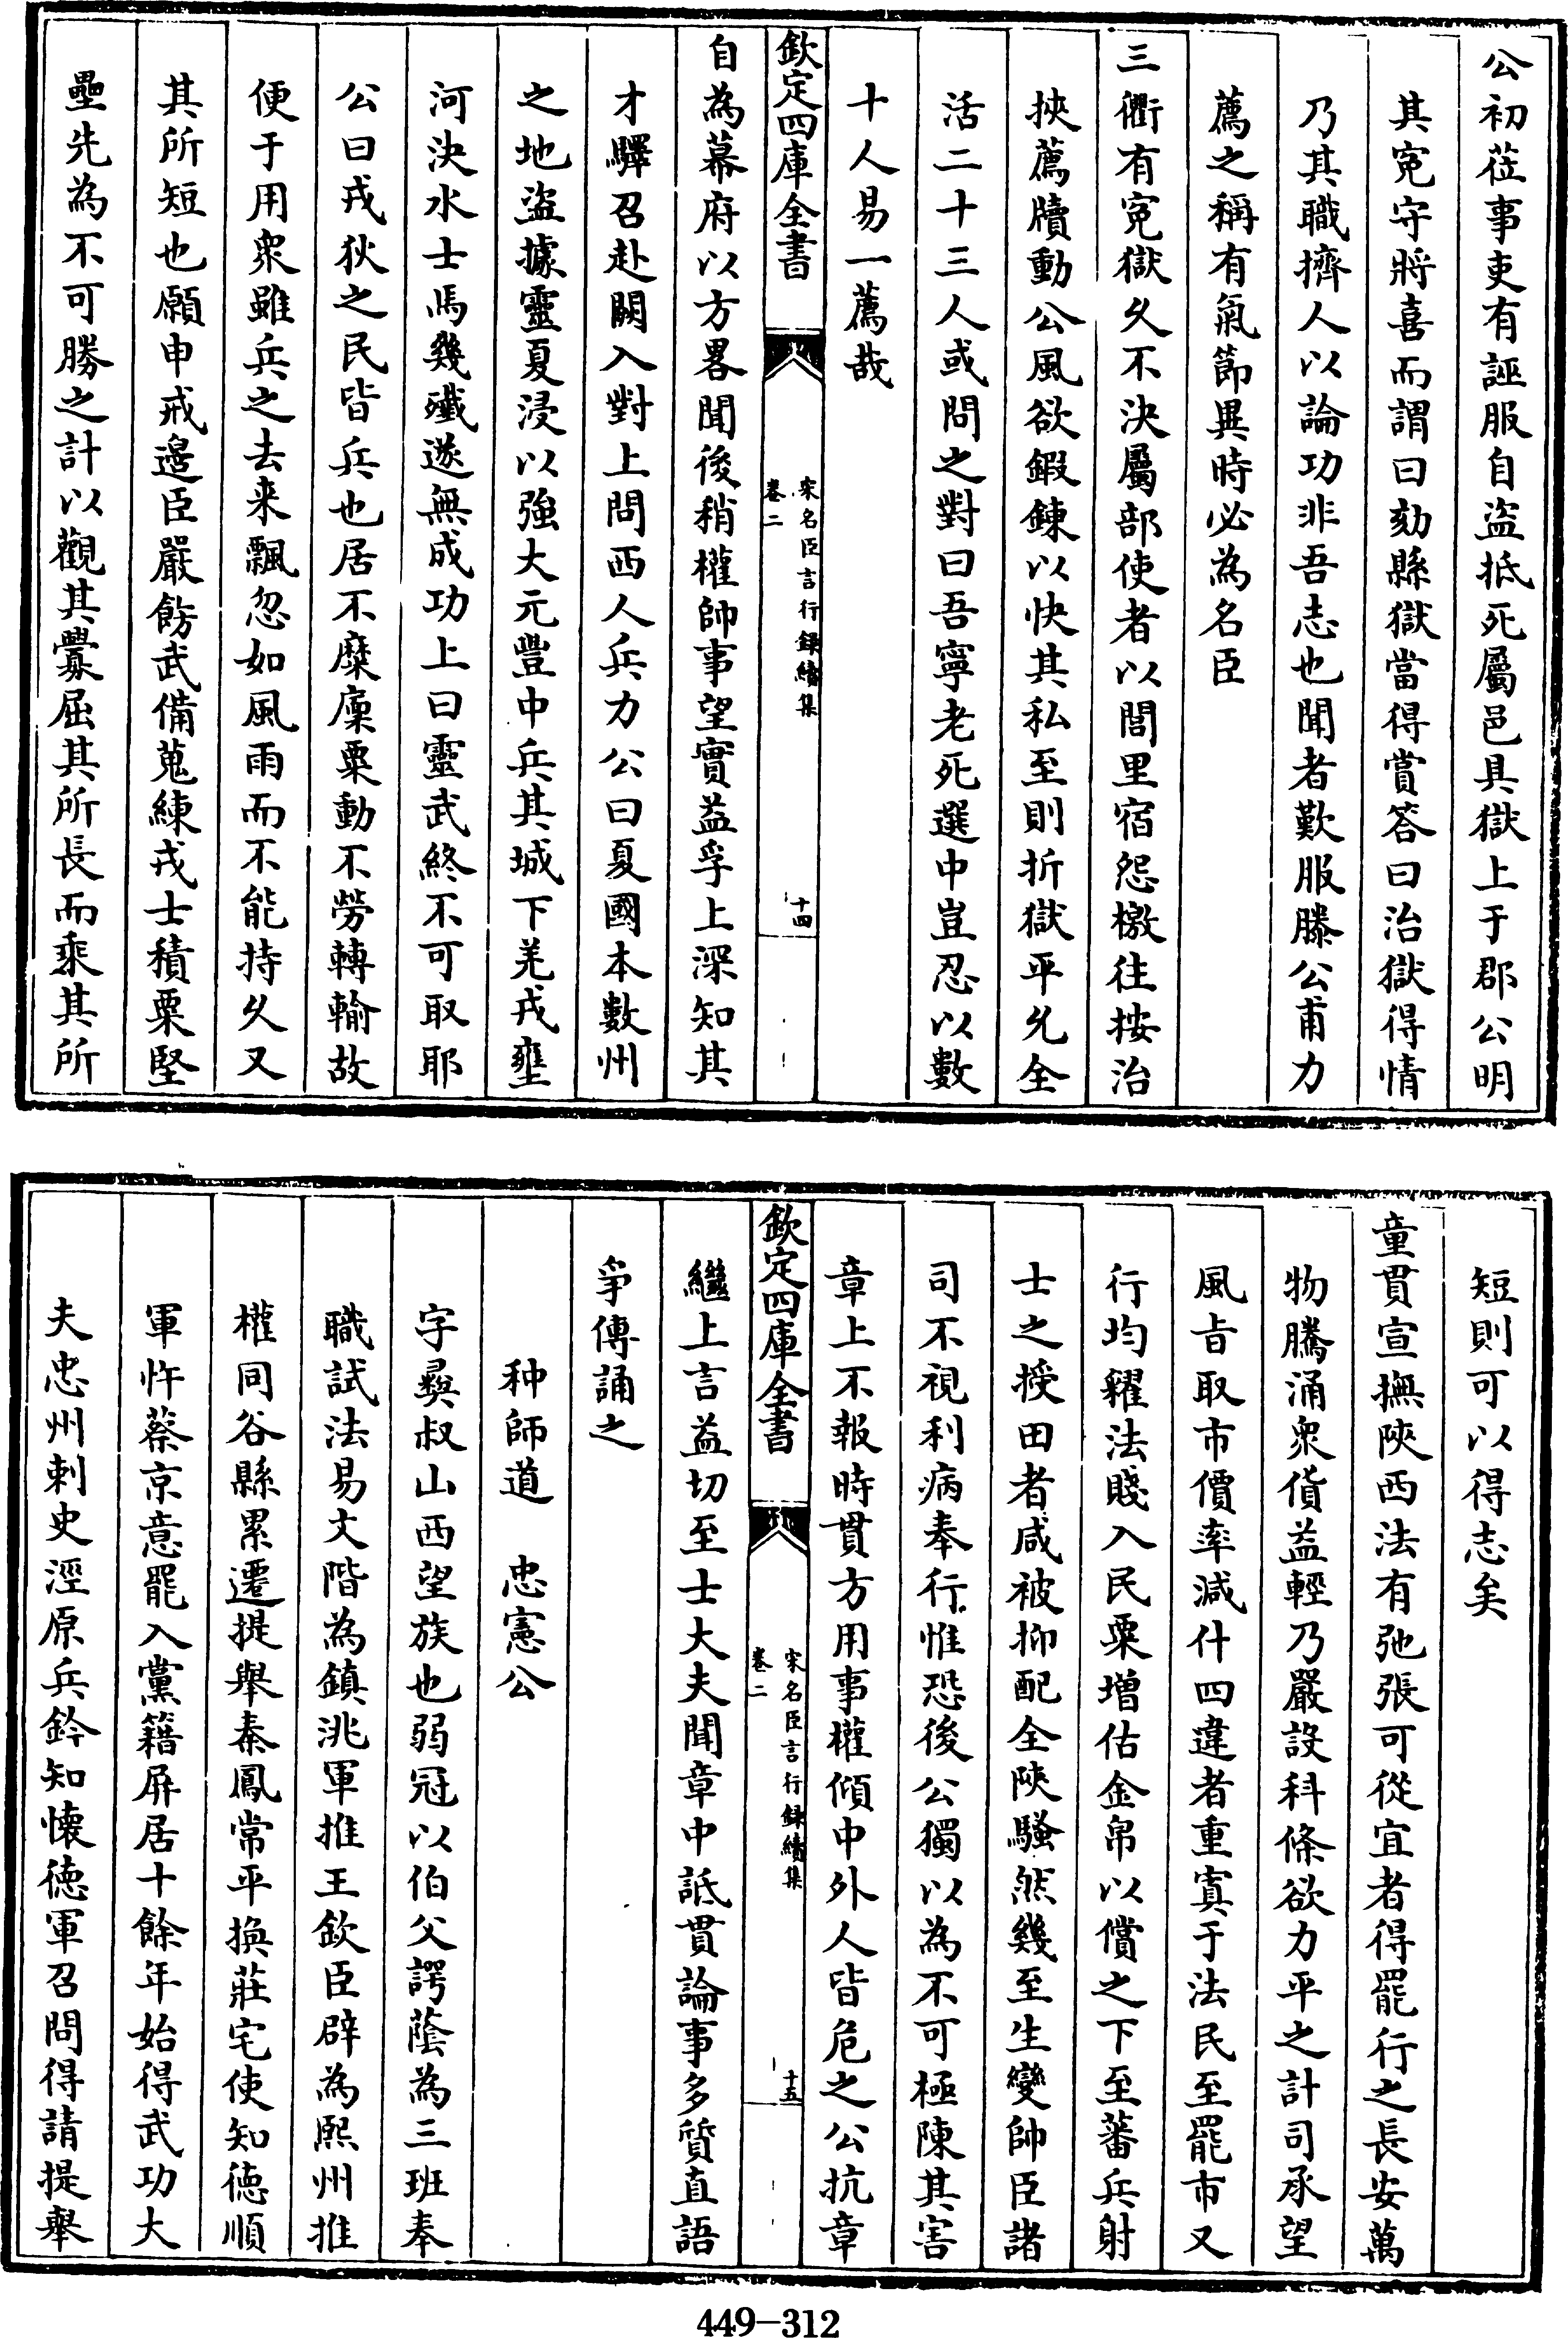 公初莅事吏有誣服自盜抵死屬邑具獄上于郡公明
其寃守將喜而謂曰劾縣獄當得賞答曰治獄得情
乃其職擠人以論功非吾志也聞者歎服滕公甫力
薦之稱有氣節異時必為名臣
三衢有寃獄久不決屬部使者以閭里宿怨檄往按治
挾薦牘動公風欲鍛鍊以快其私至則折獄平允全
活二十三人或問之對曰吾寧老死選中豈忍以數
十人易一薦哉
欽定四庫全書
宋名臣言行録續集
卷二
十四
自為幕府以方畧聞後稍權帥事望實益孚上深知其
才驛召赴闕入對上問西人兵力公曰夏國本數州
之地盜據靈夏浸以強大元豐中兵其城下羌戎壅
河決水士馬幾殲遂無成功上曰靈武終不可取耶
公曰戎狄之民皆兵也居不糜廩粟動不勞轉輸故
便于用衆雖兵之去来飄忽如風雨而不能持久又
其所短也願申戒邊臣嚴飭武備蒐練戎士積粟堅
壘先為不可勝之計以觀其釁屈其所長而乘其所
短則可以得志矣
童貫宣撫陝西法有弛張可從宜者得罷行之長安萬
物騰涌衆貨益輕乃嚴設科條欲力平之計司承望
風旨取市價率減什四違者重寘于法民至罷市又
行均糴法賤入民粟增估金帛以償之下至蕃兵射
士之授田者咸被抑配全陝騷然幾至生變帥臣諸
司不視利病奉行惟恐後公獨以為不可極陳其害
章上不報時貫方用事權傾中外人皆危之公抗章
欽定四庫全書
宋名臣言行録續集
卷二
十五
繼上言益切至士大夫聞章中詆貫論事多質直語
爭傳誦之
种師道　忠憲公
字彞叔山西望族也弱冠以伯父諤蔭為三班奉
職試法易文階為鎮洮軍推王欽臣辟為熙州推
權同谷縣累遷提舉秦鳳常平換莊宅使知德順
軍忤蔡京意罷入黨籍屏居十餘年始得武功大
夫忠州刺史涇原兵鈐知懷德軍召問得請提舉
449-312